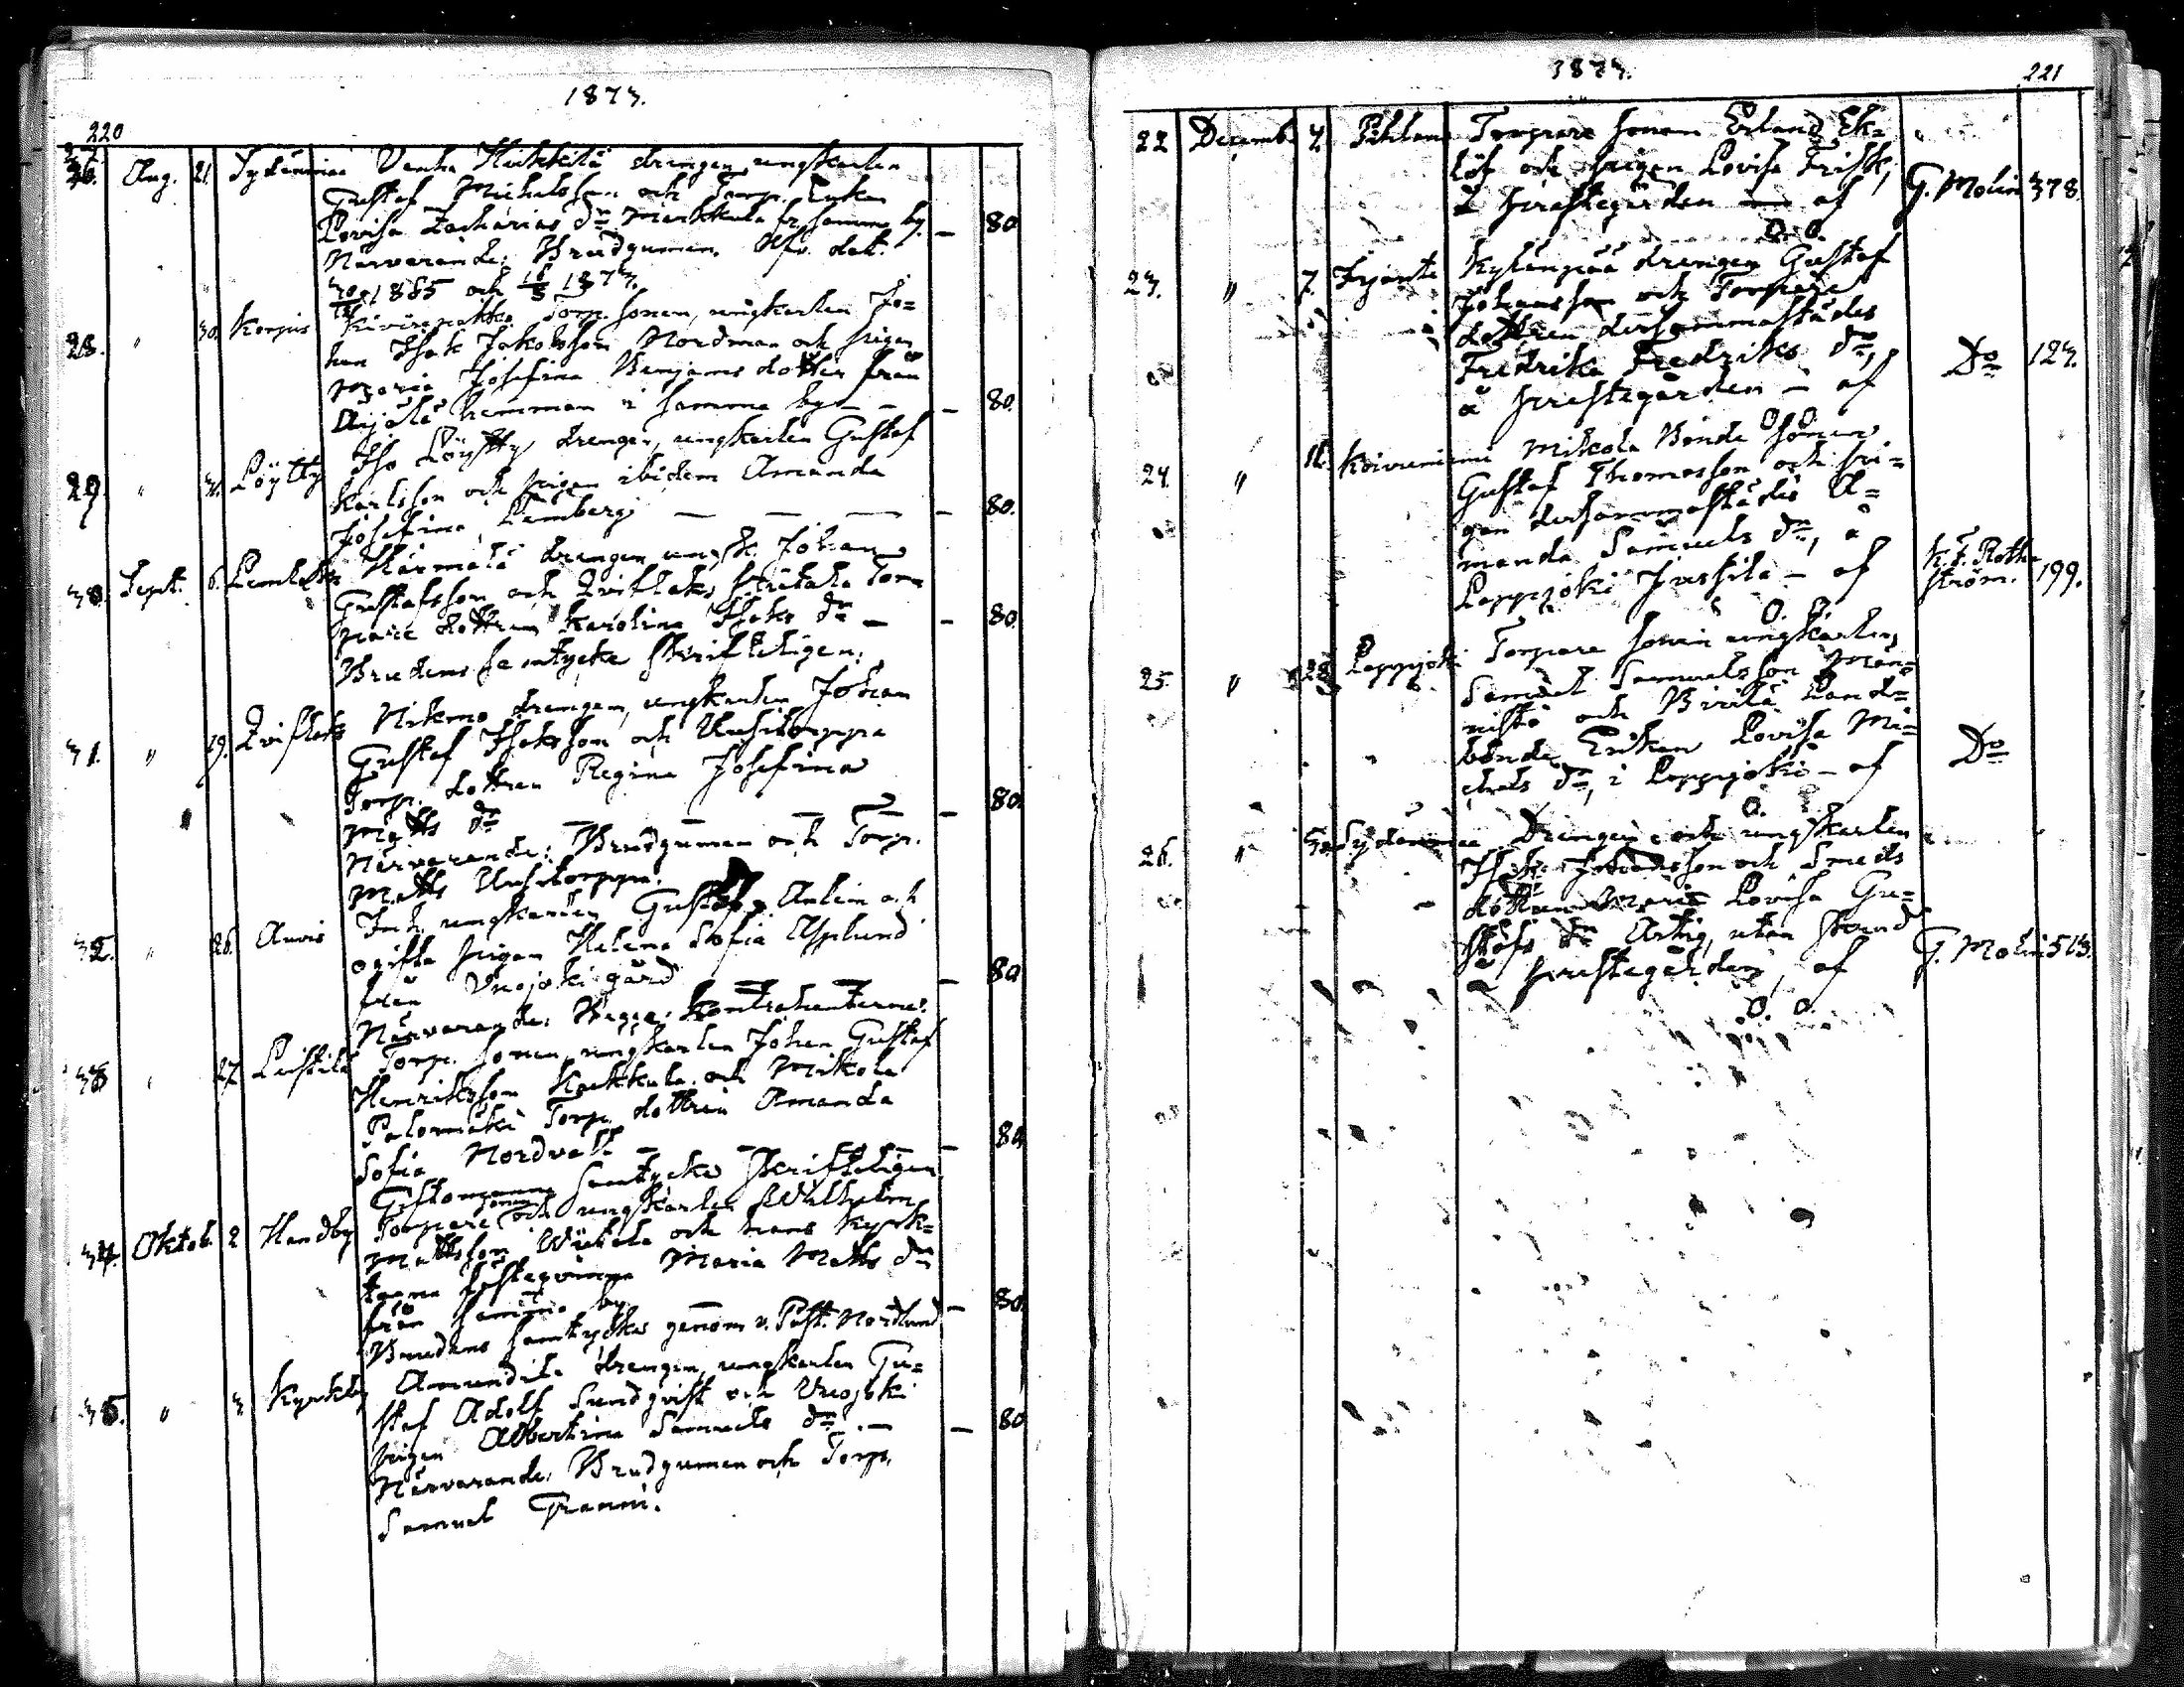 1873.
220
27. Aug. 21. Sydänmaa Vanha Heikkilä drengen ungkarlen
Gustaf Michelsson och Torp. Enkan
Lovisa Zacharias dr Markkula fr samma by. — 80
Närvarande: Brudgumen. Afv. dat.
1865 och 1873.
28. " 30. Korpis Torp. sonen, ungkarlen Jo=
han Isak Jakobsson Nordman och pigan
Maria Josefina Benjams dotter från
Anjälä hemman i samma by — — 80.
29. " 31. Löytty Iso Löytty drengen, ungkarlen Gustaf
Karlsson och pigan ibidem Amanda
Josefina Lemberg — — — — 80.
30. Sept. 6. Härmälä drengen ungk. Johan
Gustafsson och Qviflaks Torp
pare dottren Karolina Isaks dr — — 80.
Brudens samtycke skrifteligen.
31. " 19. Qviflaks drengen, ungkarlen Johan
Gustaf Isaksson och Uusitorppa
Torp. dottren Regina Josefina
Matts dr — — — — 80.
Närvarande: Brudgumen och Torp.
Matts Uusitorppa.
32. " 26. Auvis Inh. ungkarlen Gustaf Anlin och
ogifta pigan Helena Sofia Asplund
från Vuojoki gård — — — 80
Närvarande: Begge kontrahenterne.
33 " 27. Leistilä Torp. sonen, ungkarlen Johan Gustaf
Henriksson Kaukkala och Mikola
Palomäki Torp. dottren Amanda
Sofia Nordvall — — — 80.
Fästomannens samtycke skrifteligen
34. Oktob. 2 Handby Torpare sonen och ungkarlen Wilhelm
Mattsson och hans kyrk=
tagna fästeqvinna Maria Matts dr
från samma by — — 80.
Brudens samtycke genom v. Past. Nordlund
35. " 3. Kyrkby Amundila drengen, ungkarlen Gu=
staf Adolf Sundqvist och Vuojoki
pigan Albertina Samuels dr — — 80
Närvarande: Brudgumen och Torp.
Samuel Granni.
1873.
221
22 Decemb. Torpare sonen Erland Ek=
löf och pigan Lovisa Frisk,
å prestegården — af G. Molin 378.
O. O.
23. " 7. Irjante Kylänpää drengen Gustaf
Johansson och Torpare
dottren dersammastädes
Fredrika Fredriks dr,
å prestegården — af Do 123.
O. O.
24 " 11. Koivuniemi Mikola Bonde sonen
Gustaf Thomasson och pi=
gan dersammastädes A=
manda Samuels dr, å
Lappijoki Jussila — af K. F. Roth=
ström. 199.
O. O.
25. " 28 Lappijoki Torpare sonen ungkarlen,
Samuel Samuelsson Män=
nistö och Pirilä Land=
bonde Enkan Lovisa Mi=
chels dr, i Lappijoki — af Do
O. O.
26. " 30. Sydänmaa Drengen och ungkarlen
Isak Johansson och Smeds
dottren Maria Lovisa Gu=
stafs dr Artig, utan
å prestegården, af G. Molin 513.
O. O.